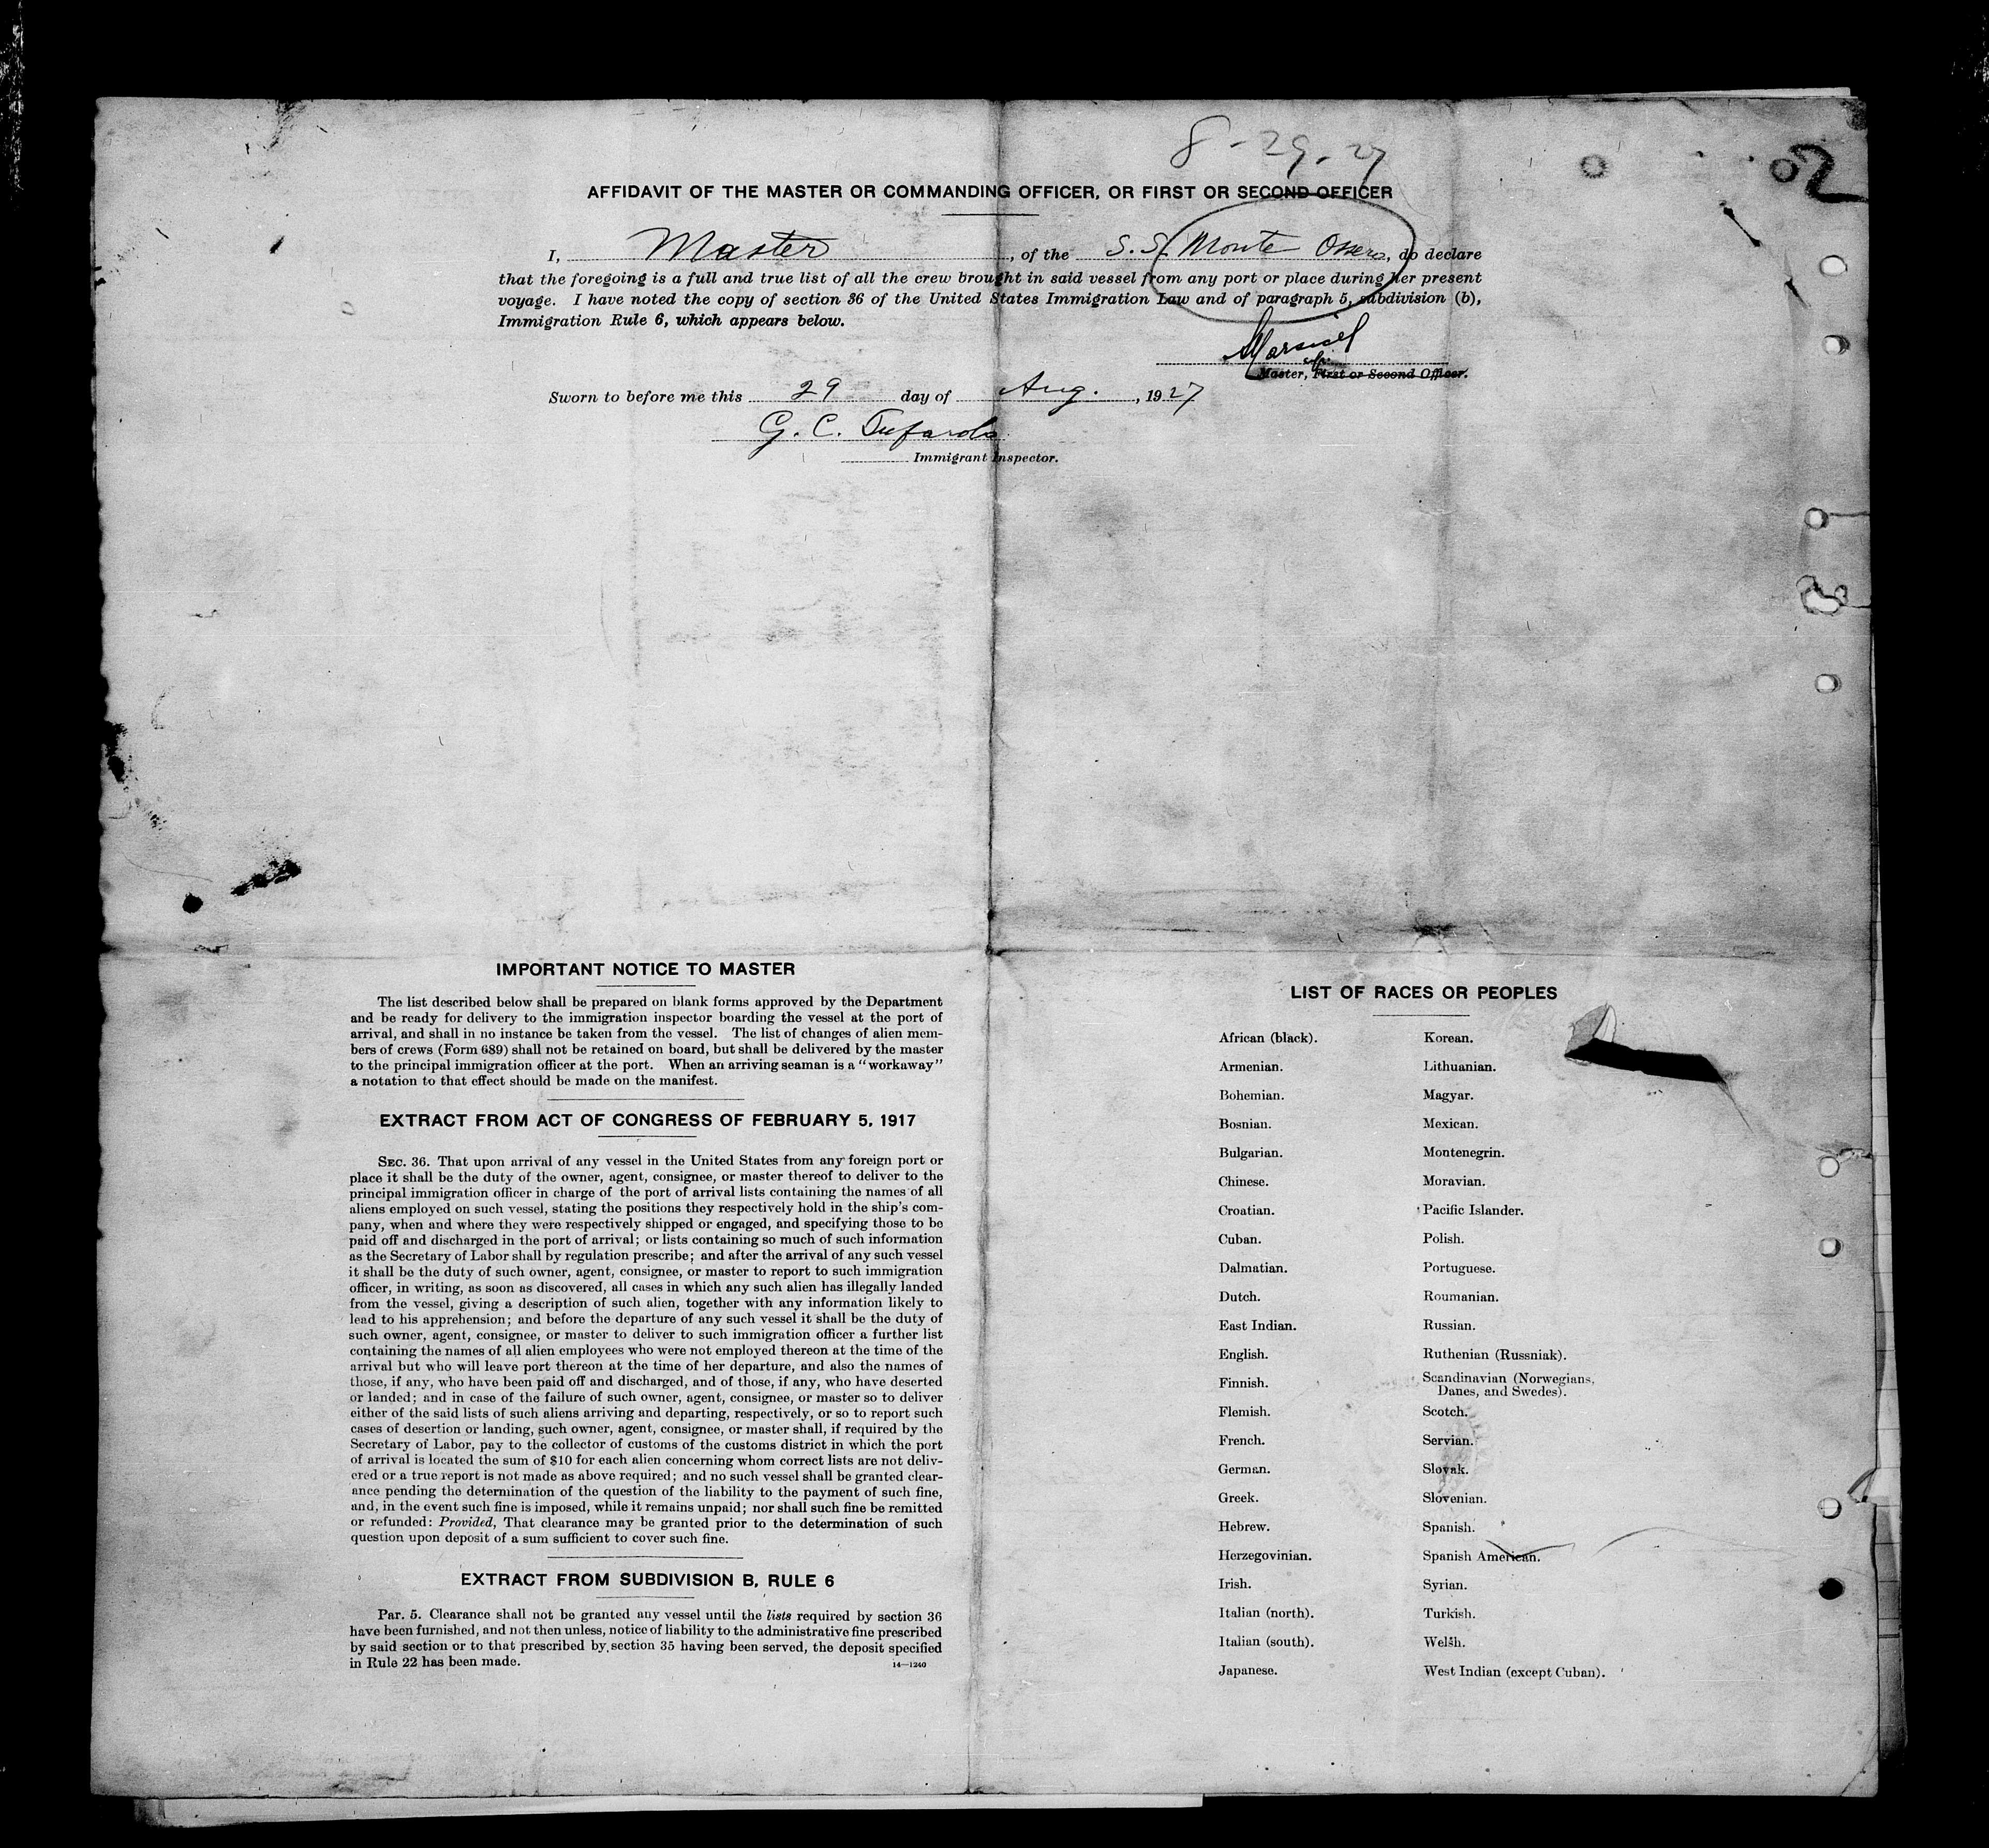 8-29-27
AFFIDAVIT OF THE MASTER OR COMMANDING OFFICER, OR FIRST OR SECOND OFFICER
I, Master, of the S.S. Monte Ossero, do declare
that the foregoing is a full and true list of all the crew brought in said vessel from any port or place during her present
voyage. I have noted the copy of section 36 of the United States Immigration Law and of paragraph 5, subdivision (b),
Immigration Rule 6, which appears below.
Master, First or Second Officer.
Sworn to before me this 29 day of Aug., 1927
G. C.
Immigrant Inspector.
IMPORTANT NOTICE TO MASTER
The list described below shall be prepared on blank forms approved by the Department
and be ready for delivery to the immigration inspector boarding the vessel at the port of
arrival, and shall in no instance be taken from the vessel. The list of changes of alien mem-
bers of crews (Form 689) shall not be retained on board, but shall be delivered by the master
to the principal immigration officer at the port. When an arriving seaman is a "workaway"
a notation to that effect should be made on the manifest.
EXTRACT FROM ACT OF CONGRESS OF FEBRUARY 5, 1917
SEC. 36. That upon arrival of any vessel in the United States from any foreign port or
place it shall be the duty of the owner, agent, consignee, or master thereof to deliver to the
principal immigration officer in charge of the port of arrival lists containing the names of all
aliens employed on such vessel, stating the positions they respectively hold in the ship's com-
pany, when and where they were respectively shipped or engaged, and specifying those to be
paid off and discharged in the port of arrival; or lists containing so much of such information
as the Secretary of Labor shall by regulation prescribe; and after the arrival of any such vessel
it shall be the duty of such owner, agent, consignee, or master to report to such immigration
officer, in writing, as soon as discovered, all cases in which any such alien has illegally landed
from the vessel, giving a description of such alien, together with any information likely to
lead to his apprehension; and before the departure of any such vessel it shall be the duty of
such owner, agent, consignee, or master to deliver to such immigration officer a further list
containing the names of all alien employees who were not employed thereon at the time of the
arrival but who will leave port thereon at the time of her departure, and also the names of
those, if any, who have been paid off and discharged, and of those, if any, who have deserted
or landed; and in case of the failure of such owner, agent, consignee, or master so to deliver
either of the said lists of such aliens arriving and departing, respectively, or so to report such
cases of desertion or landing, such owner, agent, consignee, or master shall, if required by the
Secretary of Labor, pay to the collector of customs of the customs district in which the port
of arrival is located the sum of $10 for each alien concerning whom correct lists are not deliv-
ered or a true report is not made as above required; and no such vessel shall be granted clear-
ance pending the determination of the question of the liability to the payment of such fine,
and, in the event such fine is imposed, while it remains unpaid; nor shall such fine be remitted
or refunded: Provided, That clearance may be granted prior to the determination of such
question upon deposit of a sum sufficient to cover such fine.
EXTRACT FROM SUBDIVISION B, RULE 6
Par. 5. Clearance shall not be granted any vessel until the lists required by section 36
have been furnished, and not then unless, notice of liability to the administrative fine prescribed
by said section or to that prescribed by section 35 having been served, the deposit specified
in Rule 22 has been made.
14—1240
LIST OF RACES OR PEOPLES
African (black).
Armenian.
Bohemian.
Bosnian.
Bulgarian.
Chinese.
Croatian.
Cuban.
Dalmatian.
Dutch.
East Indian.
English.
Finnish.
Flemish.
French.
German.
Greek.
Hebrew.
Herzegovinian.
Irish.
Italian (north).
Italian (south).
Japanese.
Korean.
Lithuanian.
Magyar.
Mexican.
Montenegrin.
Moravian.
Pacific Islander.
Polish.
Portuguese.
Roumanian.
Russian.
Ruthenian (Russniak).
Scandinavian (Norwegians,
Danes, and Swedes).
Scotch.
Servian.
Slovak.
Slovenian.
Spanish.
Spanish American.
Syrian.
Turkish.
Welsh.
West Indian (except Cuban).